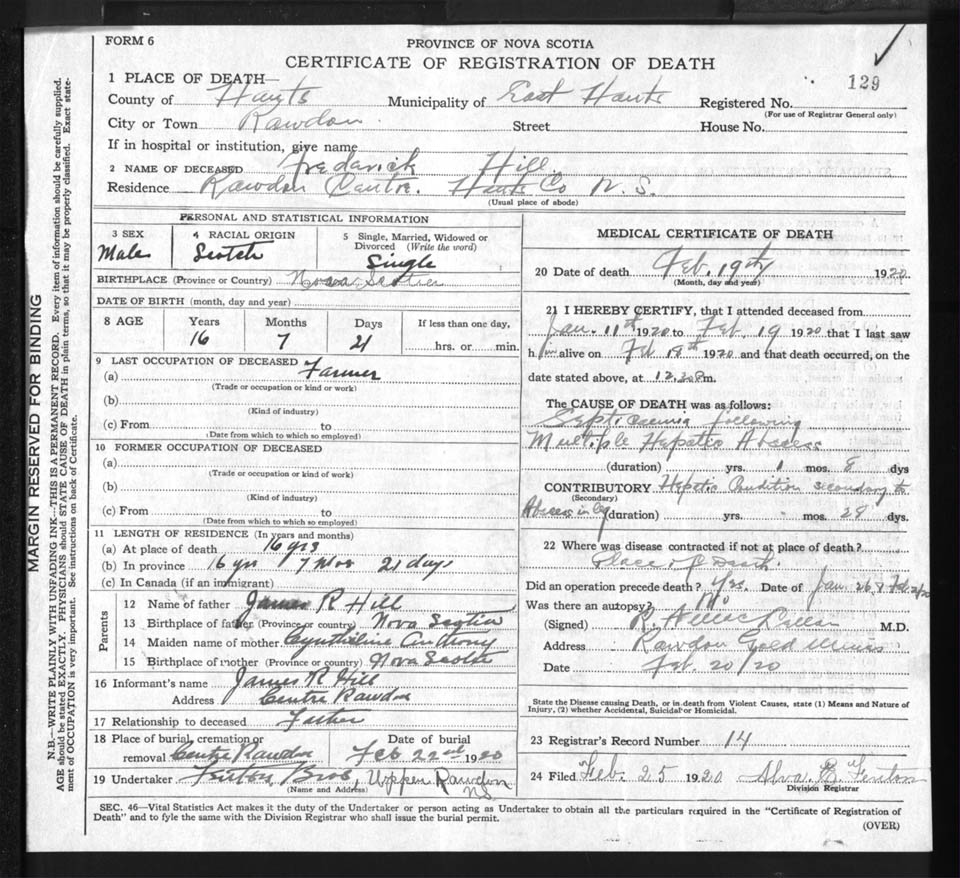 FORM 6
PROVINCE OF NOVA SCOTIA
CERTIFICATE OF REGISTRATION OF DEATH
129
1 PLACE OF DEATH—
County of Hants Municipality of East Hants Registered No.
(For use of Registrar General only)
City or Town Rawdon Street House No.
If in hospital or institution, give name
2 NAME OF DECEASED Frederick Hill
Residence Rawdon Centre. Hants Co N. S.
(Usual place of abode)
PERSONAL AND STATISTICAL INFORMATION
3 SEX 4 RACIAL ORIGIN 5 Single, Married, Widowed or
Divorced (Write the word)
Male Scotch Single
BIRTHPLACE (Province or Country) Nova Scotia
DATE OF BIRTH (month, day and year)
8 AGE Years Months Days If less than one day,
16 7 21 hrs. or min.
9 LAST OCCUPATION OF DECEASED Farmer
(a)
(Trade or occupation or kind or work)
(b)
(Kind of industry)
(c) From to
(Date from which to which so employed)
10 FORMER OCCUPATION OF DECEASED
(a)
(Trade or occupation or kind of work)
(b)
(Kind of industry)
(c) From to
(Date from which to which so employed)
11 LENGTH OF RESIDENCE (In years and months)
(a) At place of death 16 yrs
(b) In province 16 yrs 7 mos 21 days
(c) In Canada (if an immigrant)
Parents
12 Name of father James R Hill
13 Birthplace of father (Province or country) Nova Scotia
14 Maiden name of mother Anthony
15 Birthplace of mother (Province or country) Nova Scotia
16 Informant's name James R Hill
Address Centre Rawdon
17 Relationship to deceased Father
18 Place of burial, cremation or Date of burial
removal Centre Rawdon Feb 22nd 1920
19 Undertaker Fenton Bros, Upper Rawdon
NS
(Name and Address)
MEDICAL CERTIFICATE OF DEATH
20 Date of death Feb. 19th 1920
(Month, day and year)
21 I HEREBY CERTIFY, that I attended deceased from
Jan. 11th 1920 to Feb, 19 1920 that I last saw
him alive on Feb 19th 1920 and that death occurred, on the
date stated above, at 12.30 m.
The CAUSE OF DEATH was as follows:
Septicaemia following
Multiple Hepatic Abscess
(duration) yrs. 1 mos. 8 dys
CONTRIBUTORY Hepatic Condition secondary to
(Secondary)
Abscess in leg (duration) yrs. mos. 28 dys.
22 Where was disease contracted if not at place of death?
Place of Death.
Did an operation precede death? Yes. Date of Jan 26 & Feb
Was there an autopsy? No
(Signed) R. M.D.
Address Rawdon Gold Mines
Date Feb. 20/20
State the Disease causing Death, or in death from Violent Causes, state (1) Means and Nature of
Injury, (2) whether Accidental, Suicidal or Homicidal.
23 Registrar's Record Number 14
24 Filed Feb. 25 1920 Alva Fenton
Division Registrar
SEC. 46—Vital Statistics Act makes it the duty of the Undertaker or person acting as Undertaker to obtain all the particulars required in the "Certificate of Registration of
Death" and to fyle the same with the Division Registrar who shall issue the burial permit.
(OVER)
MARGIN RESERVED FOR BINDING
N.B.—WRITE PLAINLY WITH UNFADING INK—THIS IS A PERMANENT RECORD. Every item of information should be carefully supplied.
AGE should be stated EXACTLY. PHYSICIANS should STATE CAUSE OF DEATH in plain terms, so that it may be properly classified. Exact state-
ment of OCCUPATION is very important. See instructions on back of Certificate.